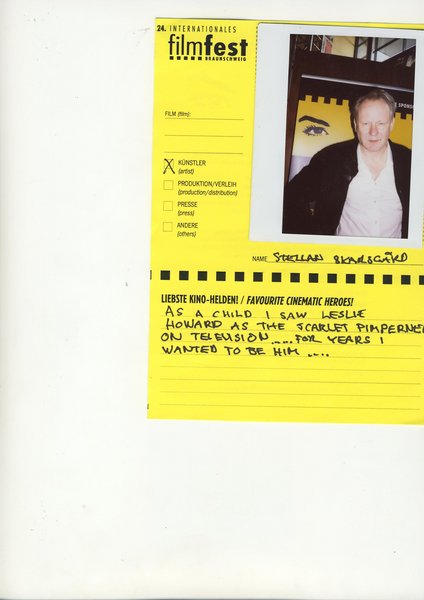 24. INTERNATIONALES
filmfest
BRAUNSCHWEIG
FILM (film):
KÜNSTLER
(artist)
PRODUKTION/VERLEIH
(production/distribution)
PRESSE
(press)
ANDERE
(others)
E SPONS
NAME STELLAN SKARSGÅRD
LIEBSTE KINO-HELDEN! / FAVOURITE CINEMATIC HEROES!
AS A CHILD I SAW LESLIE
HOWARD AS THE SCARLET PIMPERNE
ON TELEVISION .... FOR YEARS I
WANTED TO BE HIM ....